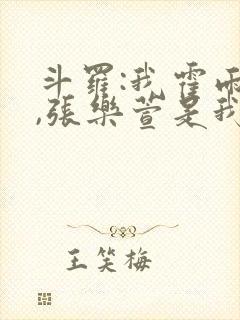 斗羅:我霍雨
,張樂萱是我
王笑梅